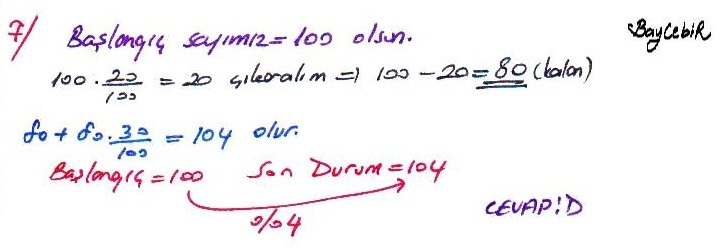 7/ Başlangıç sayımız = 100 olsun.
BayCebiR
100 . 20/100 = 20 çıkaralım => 100 - 20 = 80 (kalan)
80 + 80 . 30/100 = 104 olur.
Başlangıç = 100 Son Durum = 104
%4
CEVAP: D